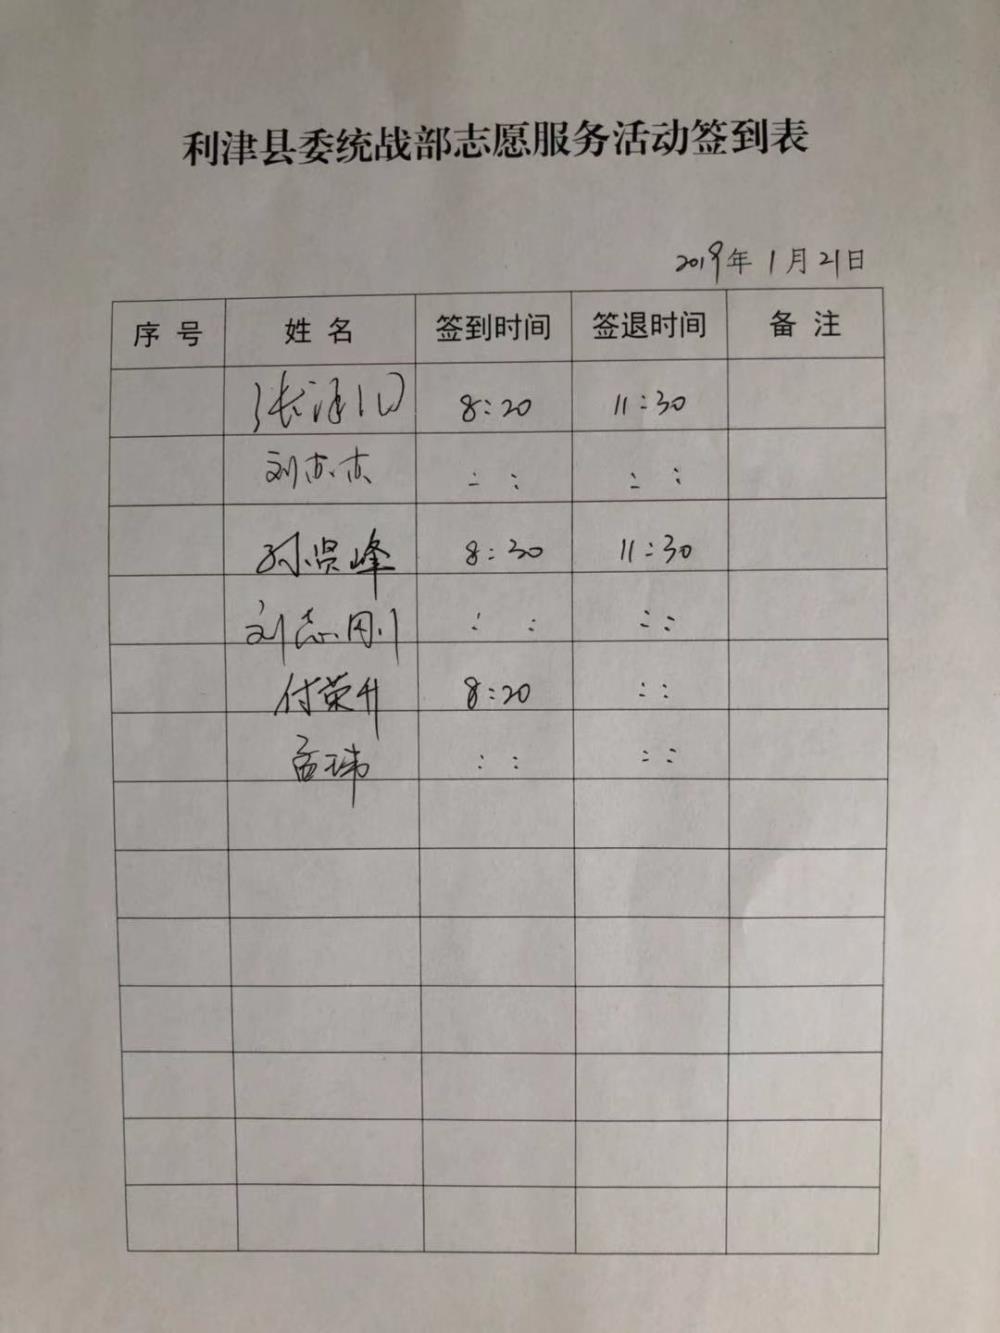 利津县委统战部志愿服务活动签到表
2019年 1月 21日
序号 姓名 签到时间 签退时间 备注
张泽 8:20 11:30
刘杰杰 : : : :
孙贤峰 8:30 11:30
刘志刚 : : : :
付荣升 8:20 : :
孟玮 : : : :